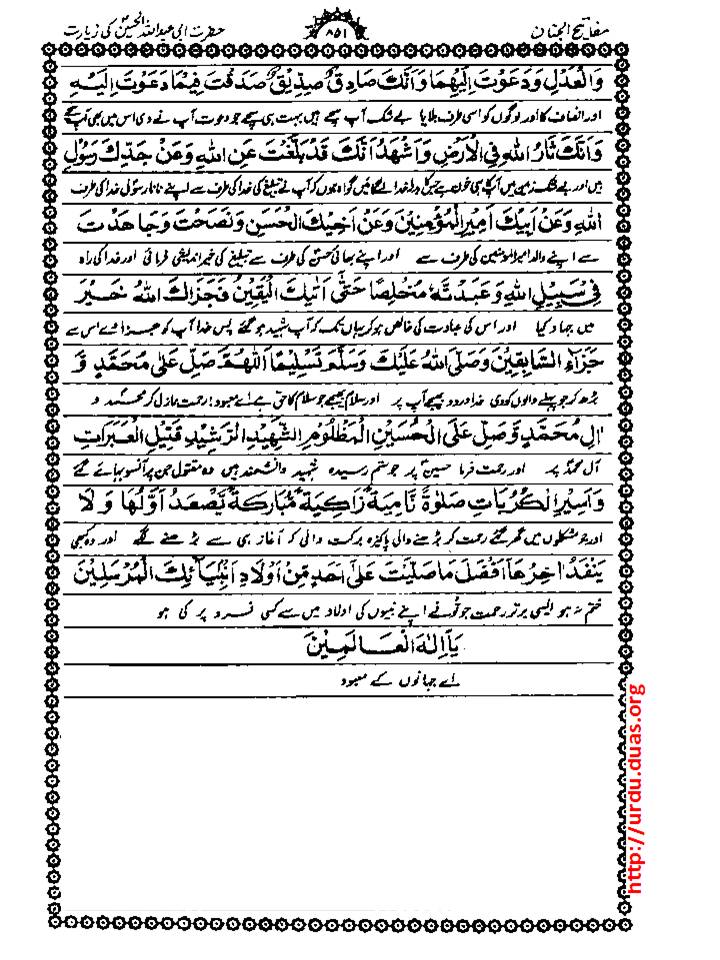 مفاتیح الجنان
۸۵۱
حضرت ابی عبداللہ الحسینؑ کی زیارت
وَالْعَدْلِ وَدَعَوْتَ اِلَيْهِمَا وَاَنَّكَ صَادِقٌ صِدِّيْقٌ صَدَقْتَ فِيْمَا دَعَوْتَ اِلَيْهِ
اور انصاف کا اور لوگوں کو اسی طرف بلایا بے شک آپ سچے ہیں بہت ہی سچے جو دعوت آپ نے دی اس میں بھی آپ سچے
وَاَنَّكَ ثَارُ اللهِ فِي الْاَرْضِ وَاَشْهَدُ اَنَّكَ قَدْ بَلَّغْتَ عَنِ اللهِ وَعَنْ جَدِّكَ رَسُوْلِ
ہیں اور بے شک زمین میں آپ ہی خون ہیں جس کا بدلہ خدا لے گا میں گواہ ہوں کہ آپ نے تبلیغ کی خدا کی طرف سے اپنے نانا رسول خدا کی طرف
اللهِ وَعَنْ اَبِيْكَ اَمِيْرِ الْمُؤْمِنِيْنَ وَعَنْ اَخِيْكَ الْحَسَنِ وَنَصَحْتَ وَجَاهَدْتَ
سے اپنے والد امیرالمومنین کی طرف سے اور اپنے بھائی حسنؑ کی طرف سے تبلیغ کی خیر اندیشی فرمائی اور خدا کی راہ
فِيْ سَبِيْلِ اللهِ وَعَبَدْتَهُ مُخْلِصًا حَتّٰى اَتٰيكَ الْيَقِيْنُ فَجَزَاكَ اللهُ خَيْرَ
میں جہاد کیا اور اس کی عبادت کی خالص ہو کر یہاں تک کہ آپ شہید ہو گئے پس خدا آپ کو جزا دے اس سے
جَزَاءِ السَّابِقِيْنَ وَصَلَّى اللهُ عَلَيْكَ وَسَلَّمَ تَسْلِيْمًا اَللّٰهُمَّ صَلِّ عَلٰى مُحَمَّدٍ وَّ
بڑھ کر جو پہلے والوں کو دی خدا درود بھیجے آپ پر اور سلام بھیجے جو سلام کا حق ہے اے معبود! رحمت نازل کر محمدؐ و
اٰلِ مُحَمَّدٍ وَّصَلِّ عَلَى الْحُسَيْنِ الْمَظْلُوْمِ الشَّهِيْدِ الرَّشِيْدِ قَتِيْلِ الْعَبَرَاتِ
آل محمدؐ پر اور رحمت فرما حسینؑ پر جو ستم رسیدہ شہید دانشمند ہیں وہ مقتول جن پر آنسو بہائے گئے
وَاَسِيْرِ الْكُرُبَاتِ صَلٰوةً نَّامِيَةً زَاكِيَةً مُّبَارَكَةً يَّصْعَدُ اَوَّلُهَا وَلَا
اور جو مشکلوں میں گھر گئے رحمت کر بڑھنے والی پاکیزہ برکت والی کہ آغاز ہی سے بڑھنے لگے اور وہ کبھی
يَنْفَدُ اٰخِرُهَا اَفْضَلَ مَا صَلَّيْتَ عَلٰى اَحَدٍ مِّنْ اَوْلَادِ اَنْبِيَآئِكَ الْمُرْسَلِيْنَ
ختم نہ ہو ایسی برتر رحمت جو تُو نے اپنے نبیوں کی اولاد میں سے کسی فرد پر کی ہو
يَآ اِلٰهَ الْعَالَمِيْنَ
اے جہانوں کے معبود
http://urdu.duas.org